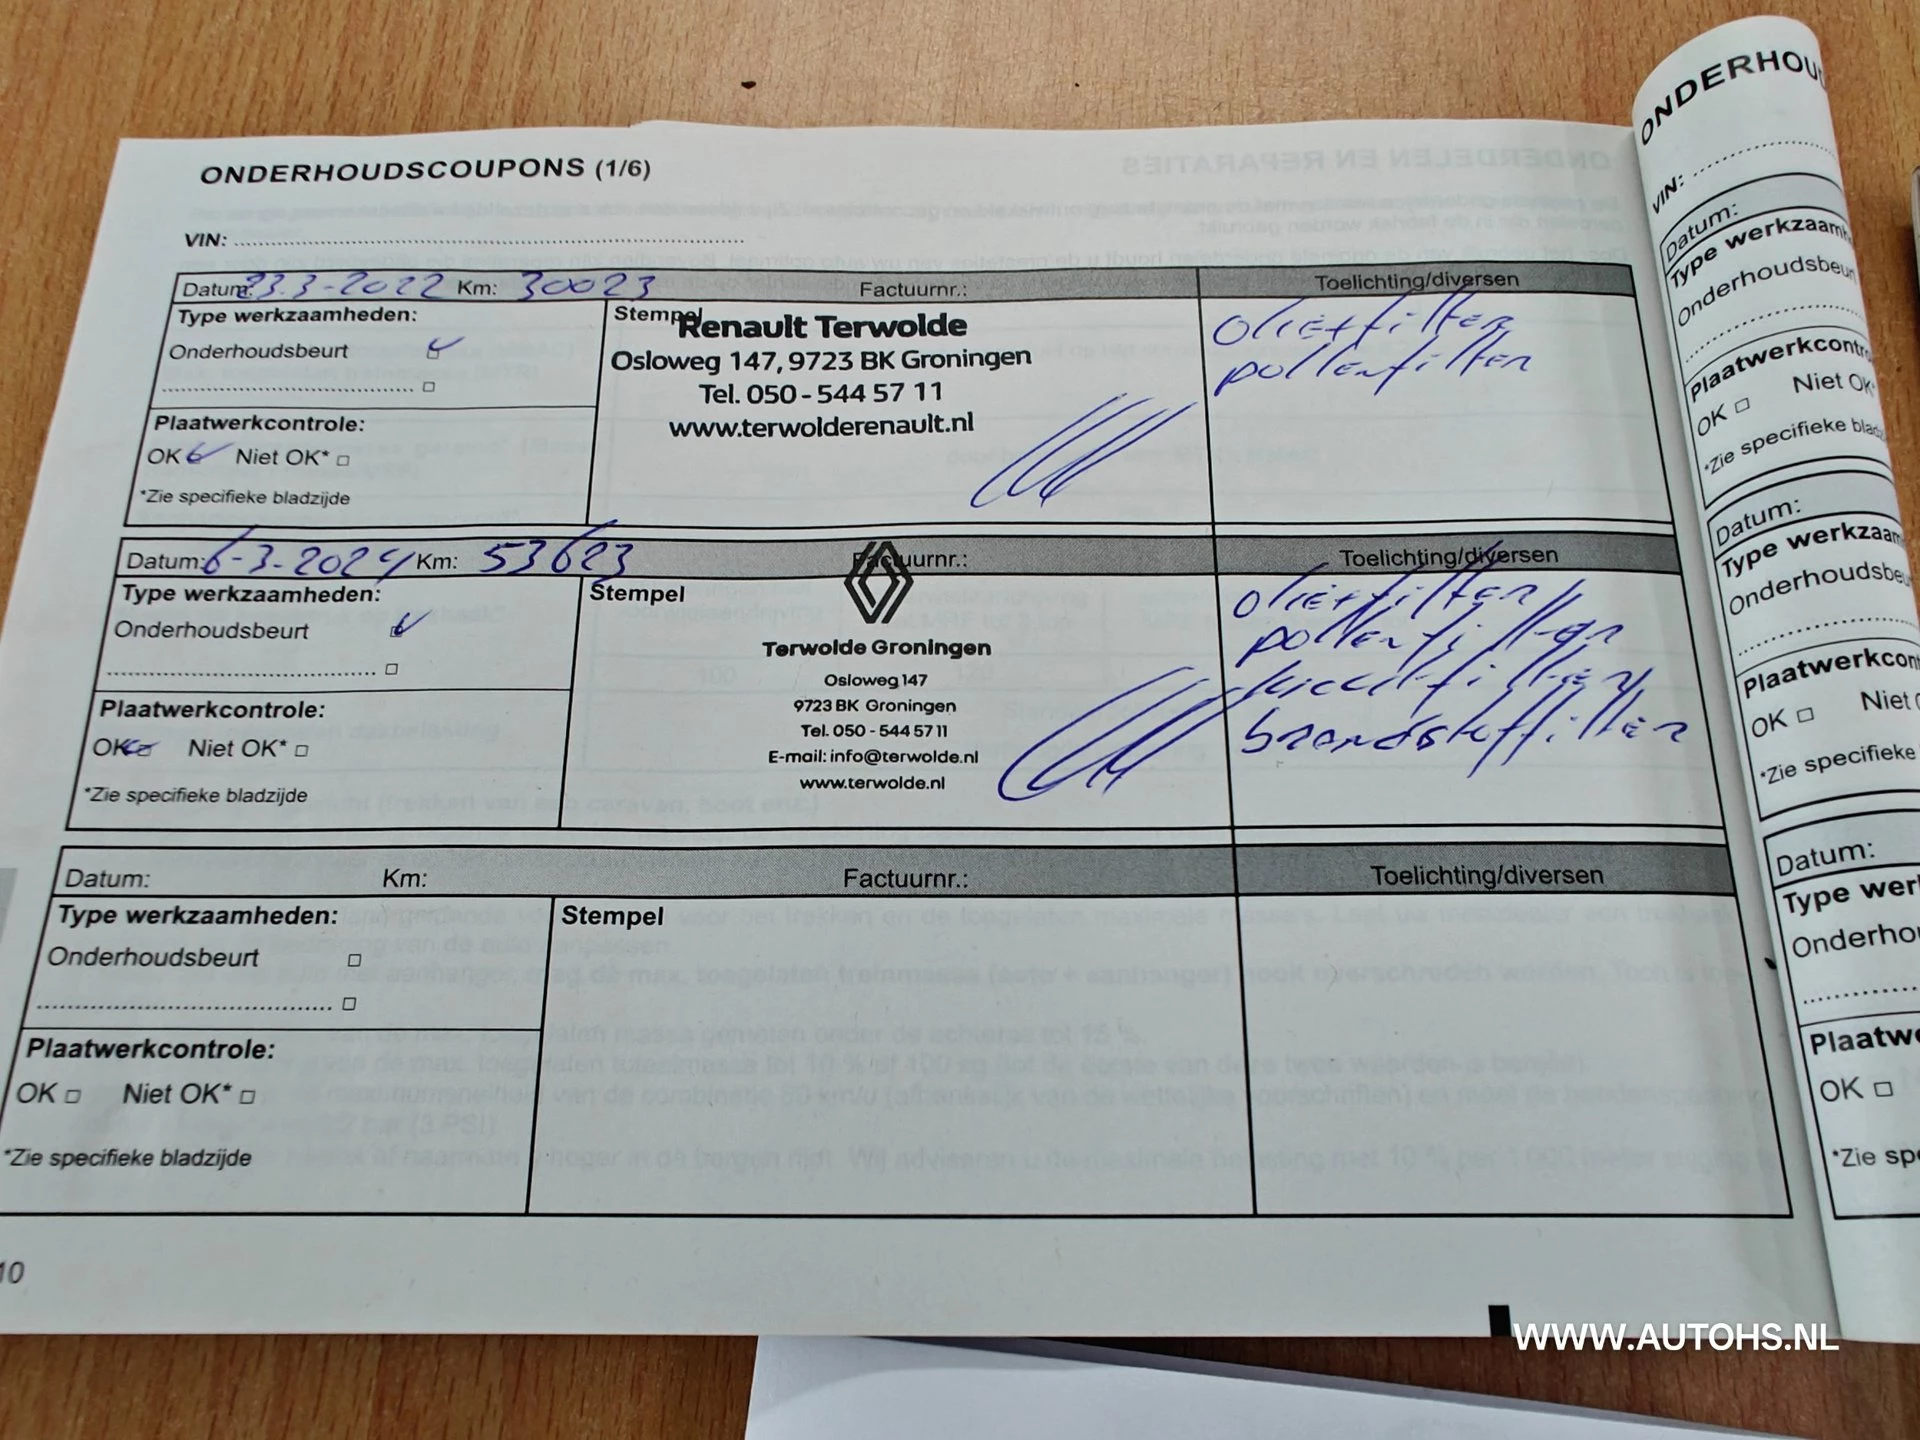 ONDERHOUDSCOUPONS (1/6)
VIN:
Datum: 23.3-2022 Km: 30023 Factuurnr.: Toelichting/diversen
Type werkzaamheden:
Onderhoudsbeurt
Plaatwerkcontrole:
OK Niet OK*
*Zie specifieke bladzijde
Stempel
Renault Terwolde
Osloweg 147, 9723 BK Groningen
Tel. 050 - 544 57 11
www.terwolderenault.nl
oliefilter
pollenfilter
Datum: 6-3-2024 Km: 53623 Factuurnr.: Toelichting/diversen
Type werkzaamheden:
Onderhoudsbeurt
Plaatwerkcontrole:
OK Niet OK*
*Zie specifieke bladzijde
Stempel
Terwolde Groningen
Osloweg 147
9723 BK Groningen
Tel. 050 - 544 57 11
E-mail: info@terwolde.nl
www.terwolde.nl
oliefilter
pollenfilter
luchtfilter
brandstoffilter
Datum: Km: Factuurnr.: Toelichting/diversen
Type werkzaamheden:
Onderhoudsbeurt
Plaatwerkcontrole:
OK Niet OK*
*Zie specifieke bladzijde
Stempel
10
VIN:
Datum:
Type
Plaatwerkcontr
OK Niet OK
*Zie specifieke
Datum:
Type
OK Niet
*Zie specifieke
Datum:
Type
OK
*Zie
WWW.AUTOHS.NL